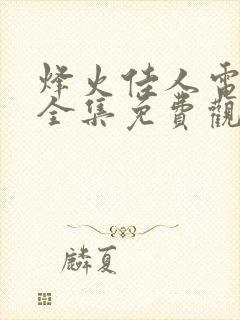 烽火佳人電
全集免費觀
麟夏